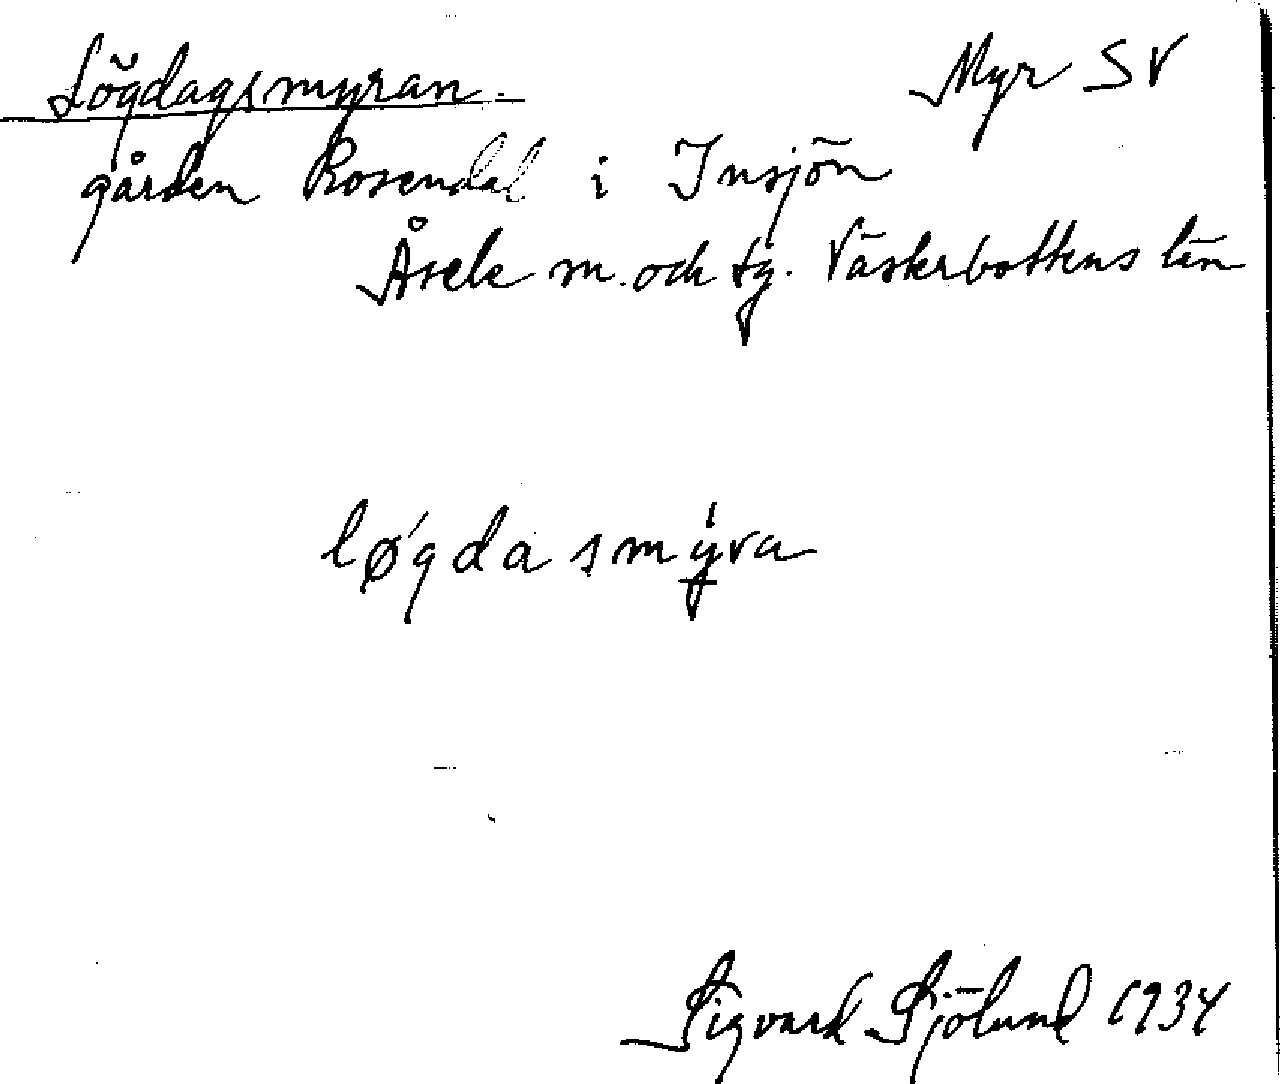 Lögdagsmyran. Myr SV
gården Rosendal i Insjön
Åsele sn. och tg. Västerbottens län
lǿgdasmy̱̍ra
Sigvard Sjölund 1934